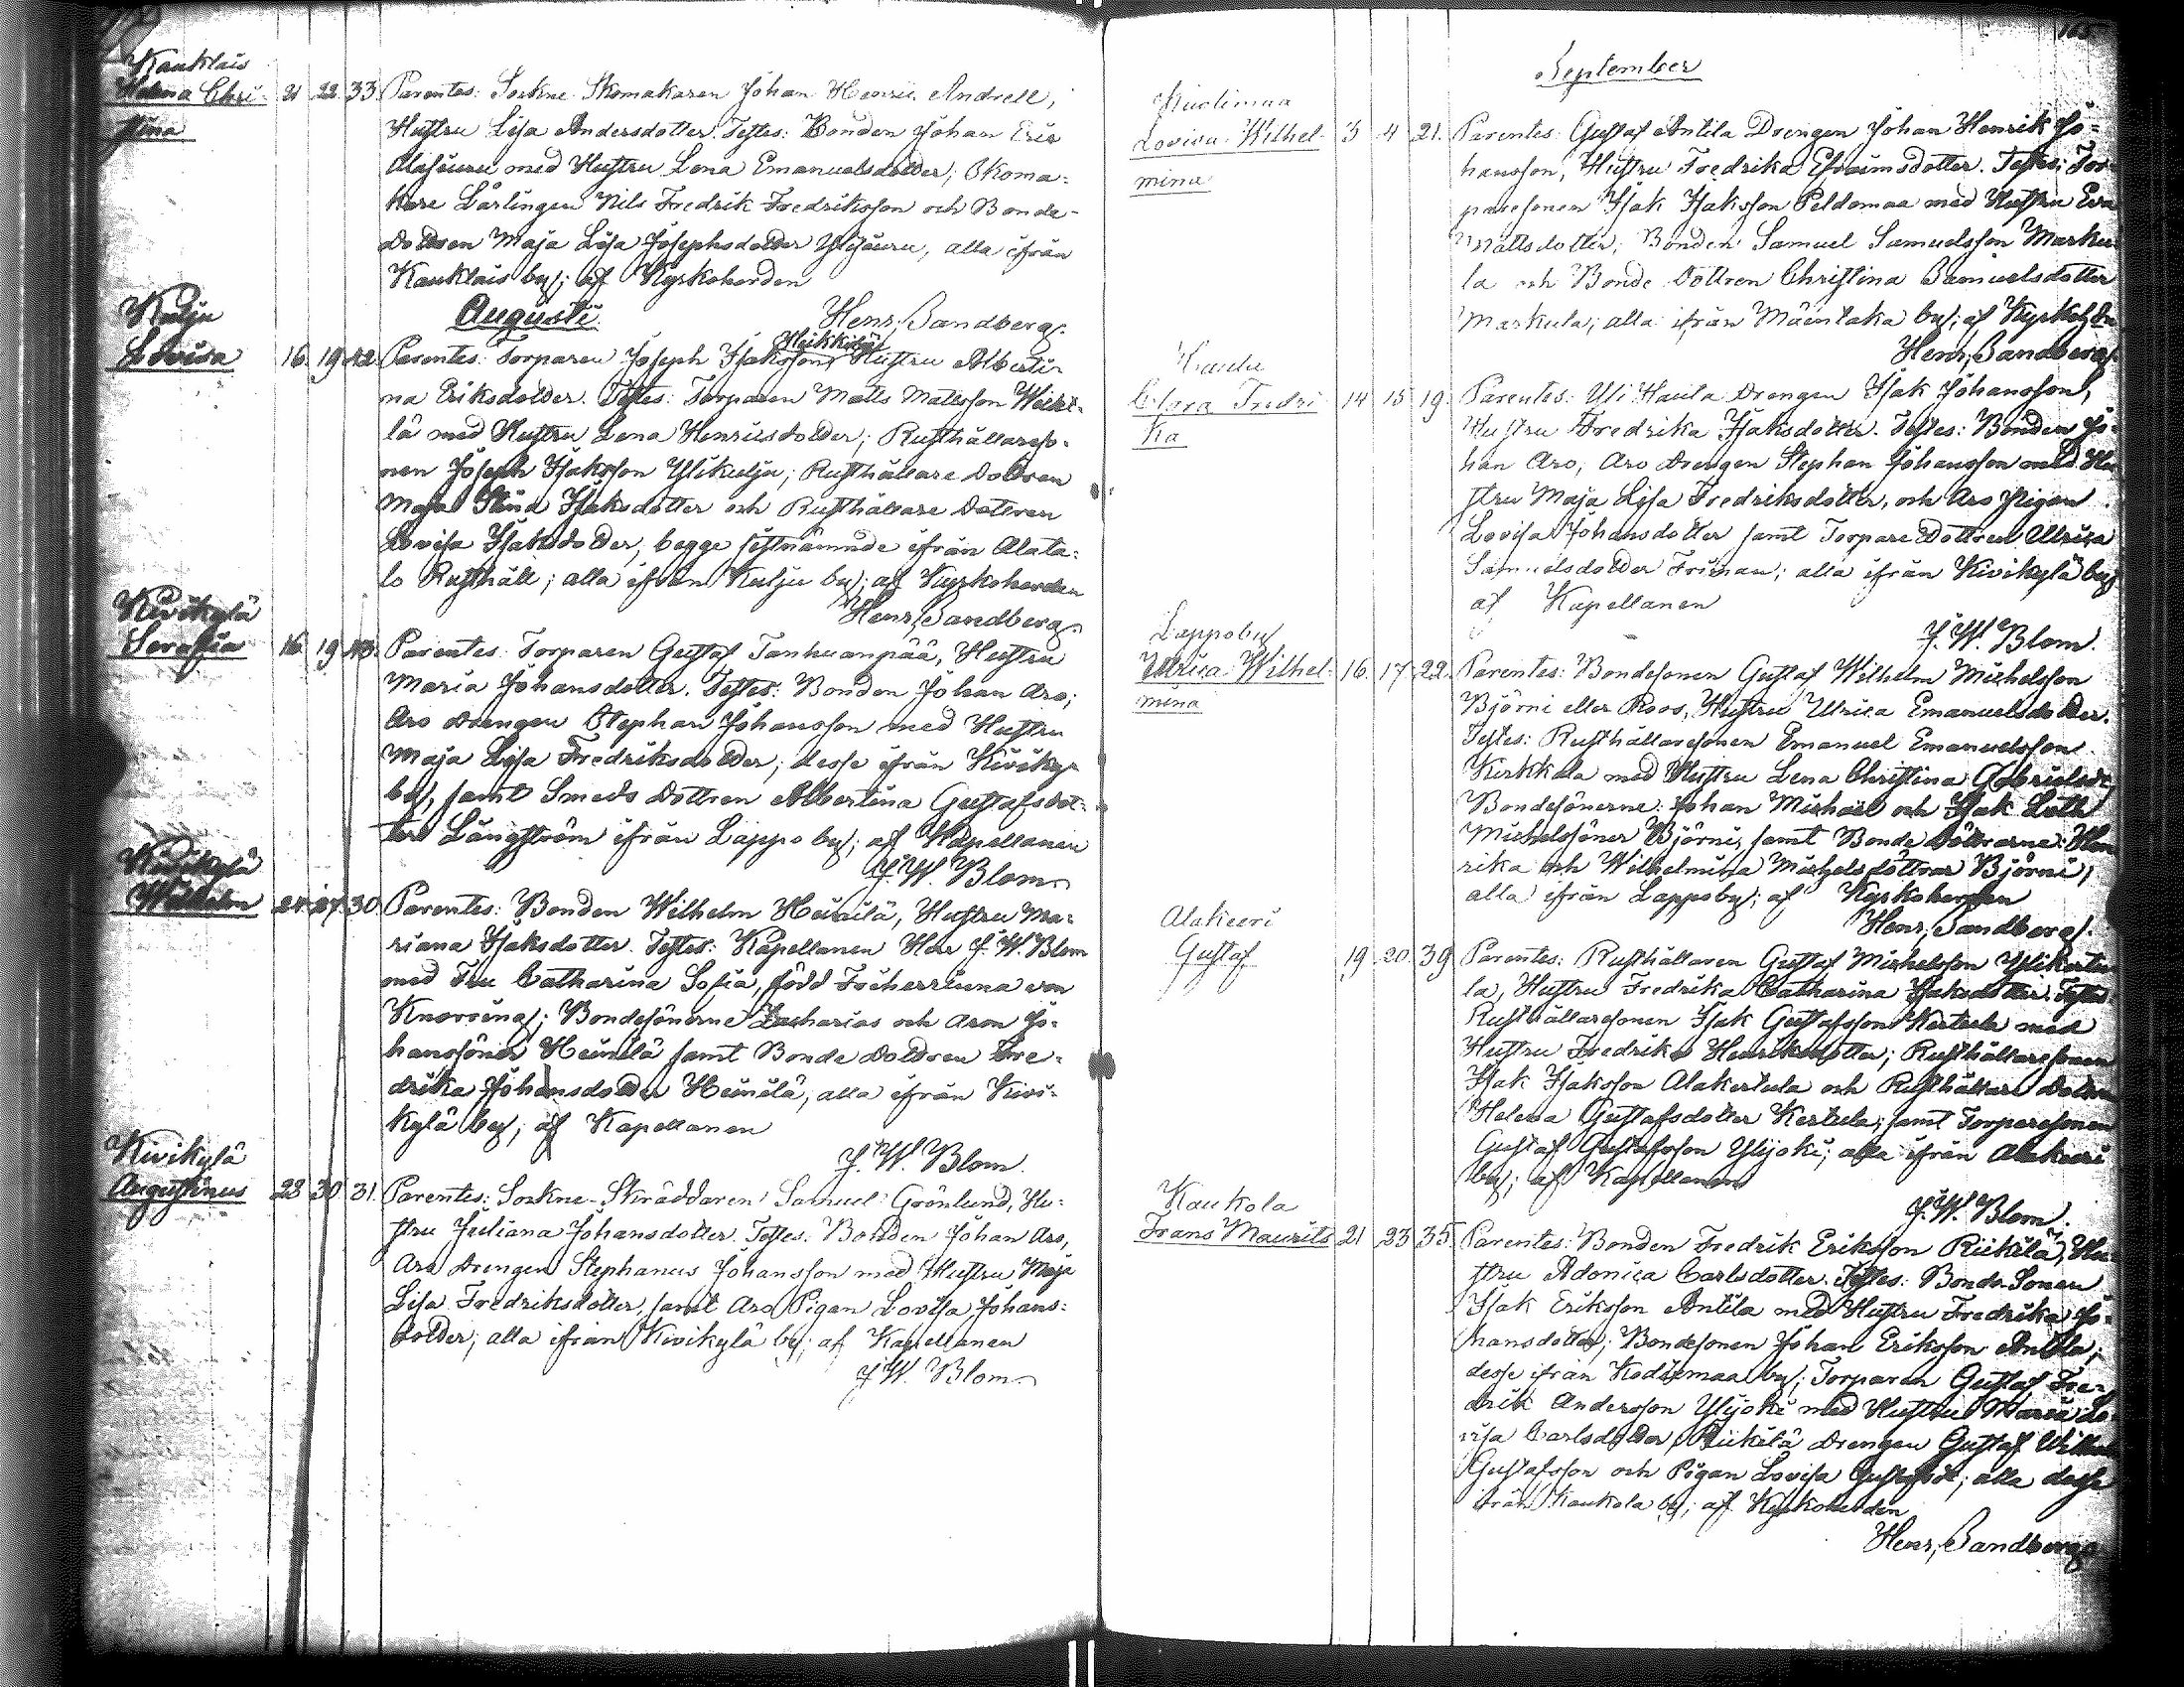 Kauklais
Helena Chri-
stina
21 22 33 Parentes: Sockne Skomakaren Johan Henric Andrell,
Hustru Lisa Andersdotter. Testes: Bonden Johan Eric
Alasjuru med Hustru Lena Emanuelsdotter; Skoma-
kare Lärlingen Nils Fredrik Fredriksson och Bonde-
dottren Maja Lisa Josephsdotter Ylisjuru, alla ifrån
Kauklais by; af Kyrkoherden
Henr. Sandberg.
Augusti.
Kulju
Lovisa
16. 19. 42. Parentes: Torparen Joseph Isaksson Heikkilä, Hustru Alberti-
na Eriksdotter. Testes: Torparen Matts Mattsson Heikki-
lä med Hustru Lena Henricsdotter; Rusthållareso-
nen Joseph Isaksson Ylikulju; Rusthållare Dottren
Maja Stina Isaksdotter och Rusthållare Dottren
Lovisa Isaksdotter, begge sistnämnde ifrån Alata-
lo Rusthåll; alla ifrån Kulju by; af Kyrkoherden
Henr. Sandberg.
Kivikylä
Serafia
16. 19. 43. Parentes: Torparen Gustaf Tanhuanpää, Hustru
Maria Johansdotter. Testes: Bonden Johan Aro;
Aro Drengen Stephan Johansson med Hustru
Maja Lisa Fredriksdotter; desse ifrån Kiviky-
by, samt Smeds Dottren Albertina Gustafsdot-
ter Långström ifrån Lappo by; af Kapellanen
J. W. Blom
Kivikylä
Wilhelm
24. 27. 30. Parentes: Bonden Wilhelm Heinilä, Hustru Ma-
riana Isaksdotter. Testes: Kapellanen Herr J. W. Blom
med Fru Catharina Sofia, född Friherrinna von
Knorring; Bondesönerne Zacharias och Aron Jo-
hanssöner Heinilä samt Bonde Dottren Fre-
drika Johansdotter Heinilä, alla ifrån Kivi-
kylä by; af Kapellanen
J. W. Blom.
Kivikylä
Augustinus
28 30 31. Parentes: Sockne-Skräddaren Samuel Grönlund, Hu-
stru Juliana Johansdotter. Testes: Bonden Johan Aro,
Aro Drengen Stephanus Johansson med Hustru Maja
Lisa Fredriksdotter, samt Aro Pigan Lovisa Johans-
dotter; alla ifrån Kivikylä by; af Kapellanen
J. W. Blom.
165
September
Lovisa Wilhel-
mina
3 4 21. Parentes: Gustaf Antila Drengen Johan Henrik Jo-
hansson, Hustru Fredrika Efraimsdotter. Testes: Tor-
paresonen Isak Isaksson Peldomaa med Hustru Eva
Mattsdotter; Bonden Samuel Samuelsson Marku-
la och Bonde Dottren Christina Samuelsdotter
Markula; alla ifrån Mäentaka by; af
Henr. Sandberg.
Haula
Clara Fredri
ka
14 15 19. Parentes: Yli Haula Drengen Isak Johansson,
Hustru Fredrika Isaksdotter. Testes: Bonden Jo-
han Aro, Aro Drengen Stephan Johansson med Hu-
stru Maja Lisa Fredriksdotter, och Aro Pigan
Lovisa Johansdotter samt Torpare Dottren Ulrica
Samuelsdotter Friman; alla ifrån Kivikylä by
af Kapellanen
J. W. Blom.
Lappoby
Ulrica Wilhel-
mina
16. 17. 22. Parentes: Bondesonen Gustaf Wilhelm Michelsson
Björni eller Roos, Hustru Ulrica Emanuelsdotter.
Testes: Rusthållaresonen Emanuel Emanuelsson
Kirkkala med Hustru Lena Christina Gabrielsd:r
Bondesönerne: Johan Michael och Isak
Michelssöner Björni, samt Bonde Döttrarne: Hen-
rika och Wilhelmina Michelsdöttrar Björni;
alla ifrån Lappoby; af Kyrkoherden
Henr. Sandberg.
Alakieri
Gustaf
19. 20. 39 Parentes: Rusthållaren Gustaf Michelsson Ylikertu-
la, Hustru Fredrika Catharina Isaksdotter. Testes:
Rusthållaresonen Isak Gustafsson Kertula med
Hustru Fredrika Henriksdotter; Rusthållaresonen
Isak Isaksson Alakertula och Rusthållare Dottren
Helena Gustafsdotter Kertula; samt Torparesonen
Gustaf Gustafsson Ylijoki; alla ifrån Alakieri
by; af Kapellanen
J. W. Blom.
Kaukola
Frans Maurits
21 23 35 Parentes: Bonden Fredrik Eriksson Riikilä, Hu-
stru Adonica Carlsdotter. Testes: Bonde Sonen
Isak Eriksson Antila med Hustru Fredrika Jo-
hansdotter; Bondesonen Johan Eriksson Antila;
desse ifrån Kodixmaa by; Torparen Gustaf Fre-
drik Andersson Ylijoki med Hustru Maria Lo-
visa Carlsdotter, Riikilä Drengen Gustaf Wilhelm
Gustafsson och Pigan Lovisa Gustafsd:r; alla desse
ifrån Kaukola by; af Kyrkoherden
Henr. Sandberg